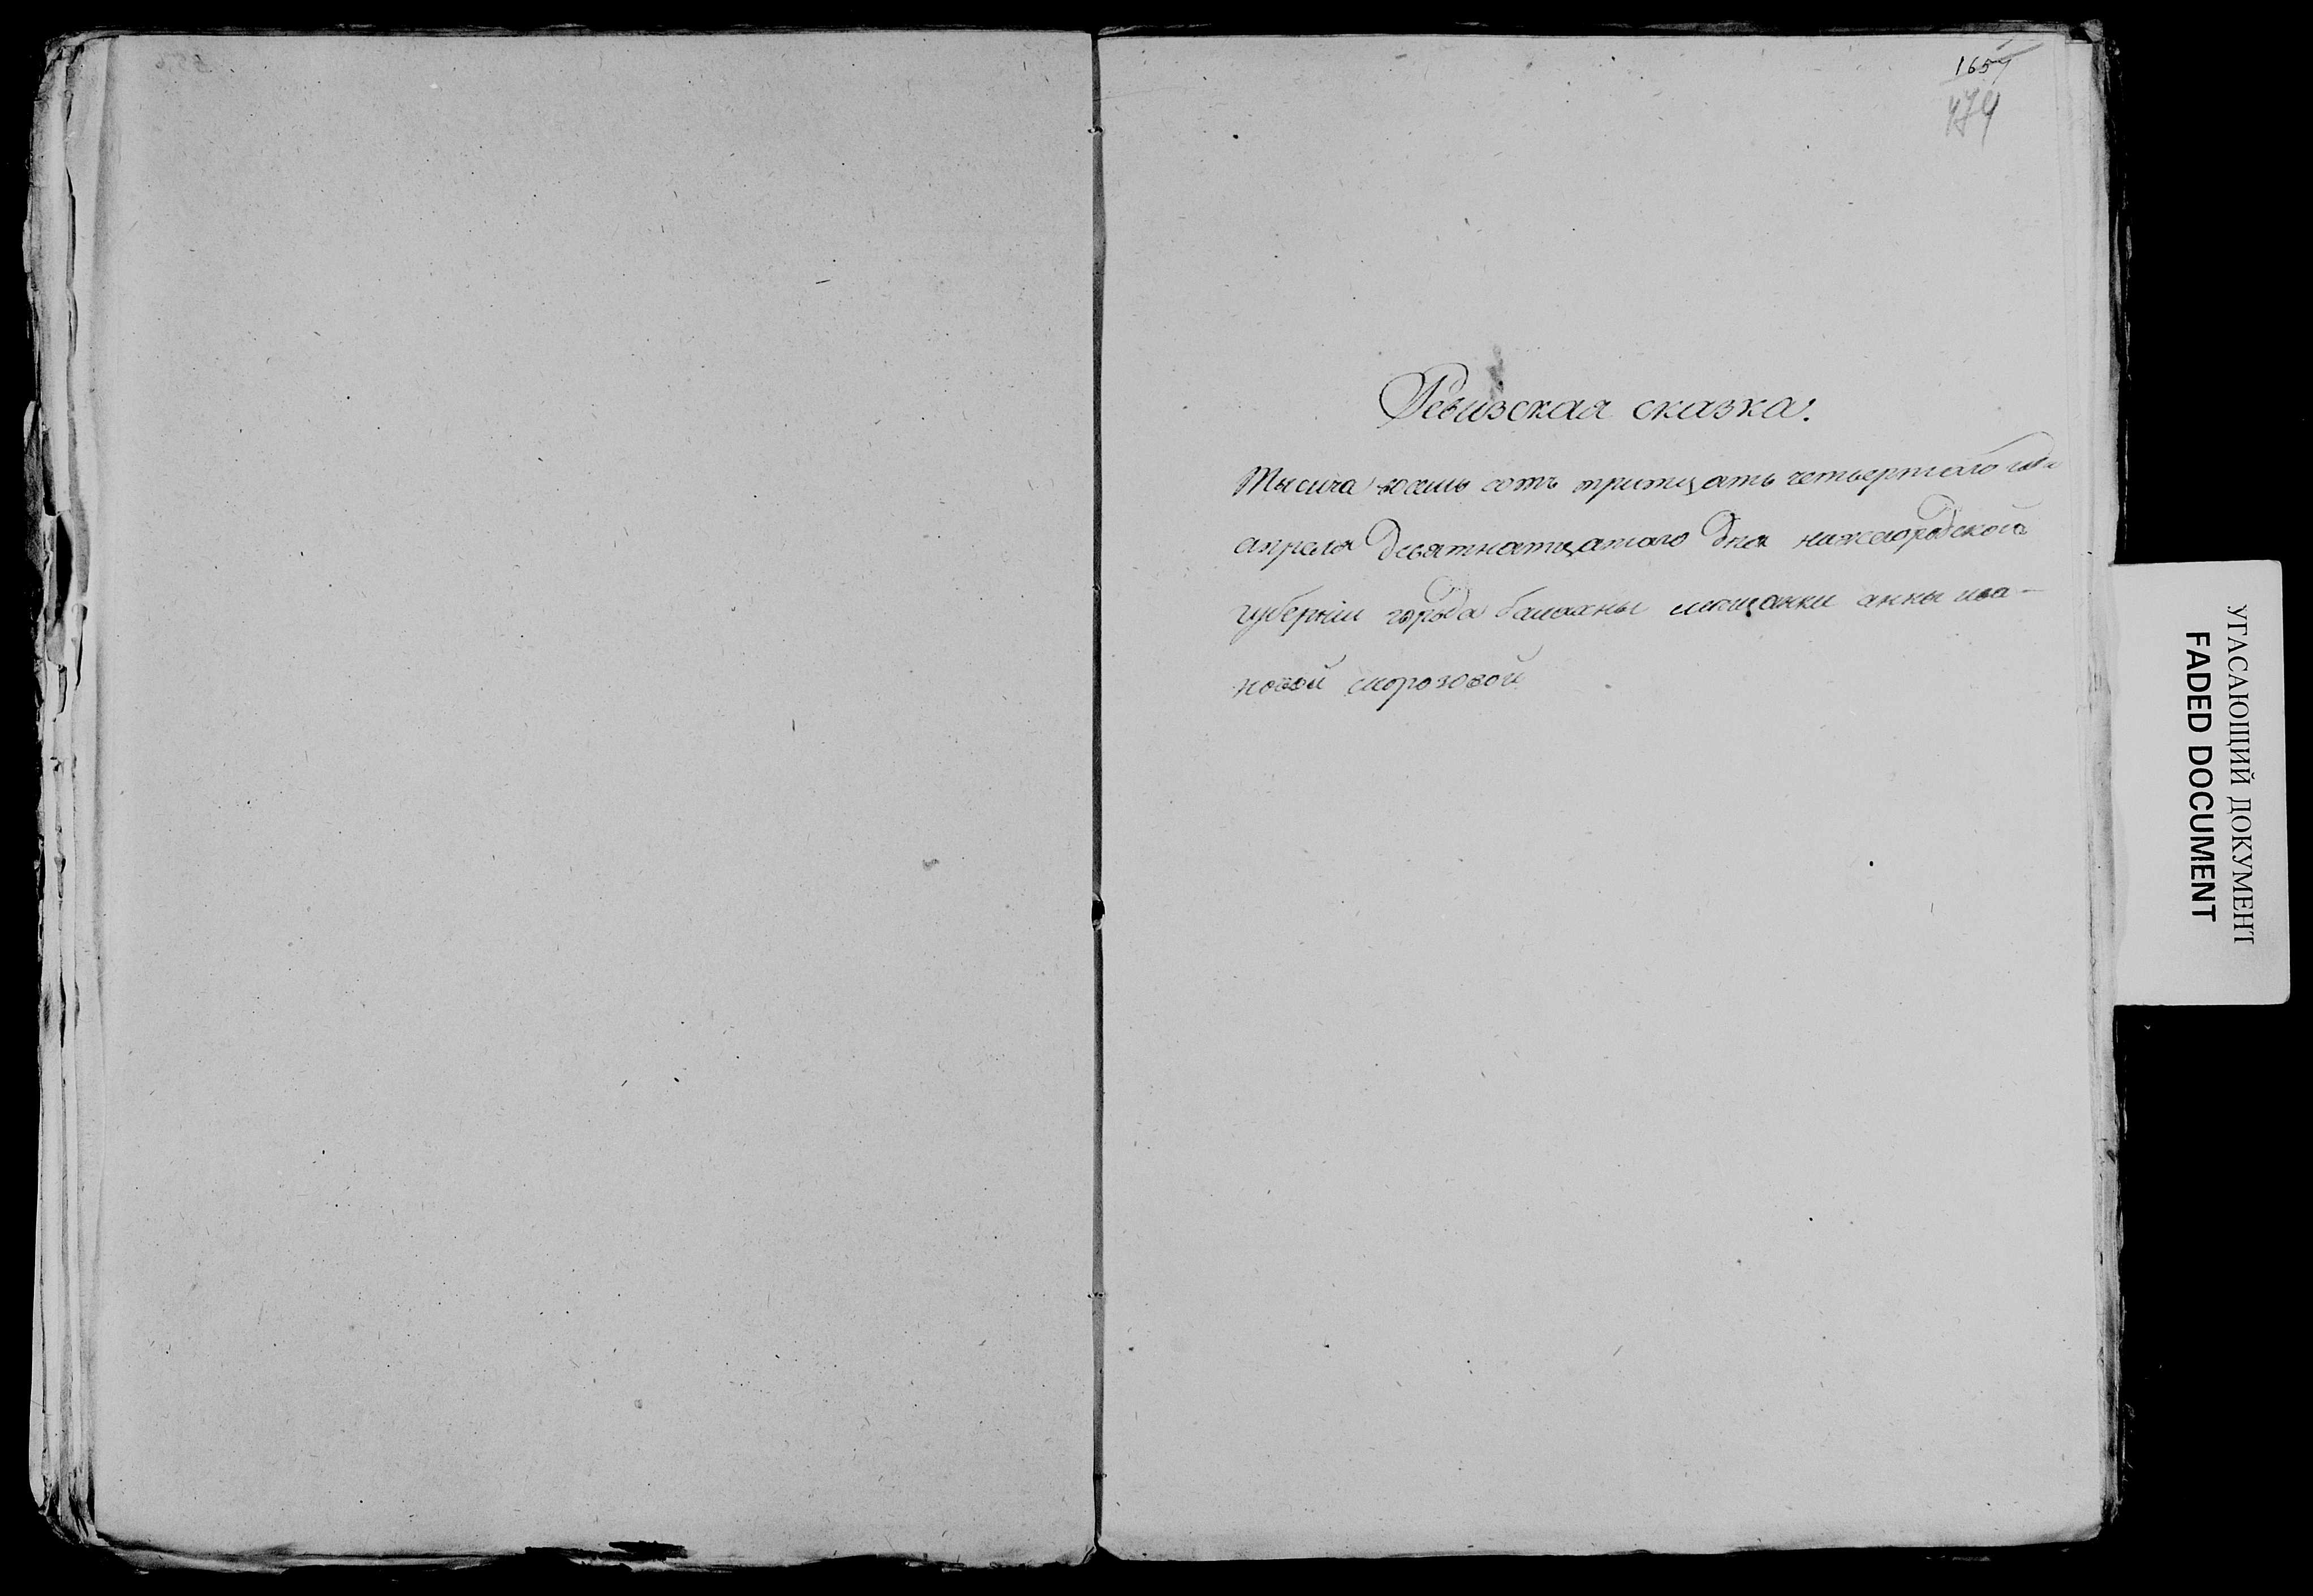 165
474
Ревизская сказка.
Тысяча восемь сотъ тритцать четвертаго года
апреля Девятнатцатаго Дня нижегородской
губернiи города балахны мещанки анны ива-
новой морозовой
УГАСАЮЩИЙ ДОКУМЕНТ
FADED DOCUMENT